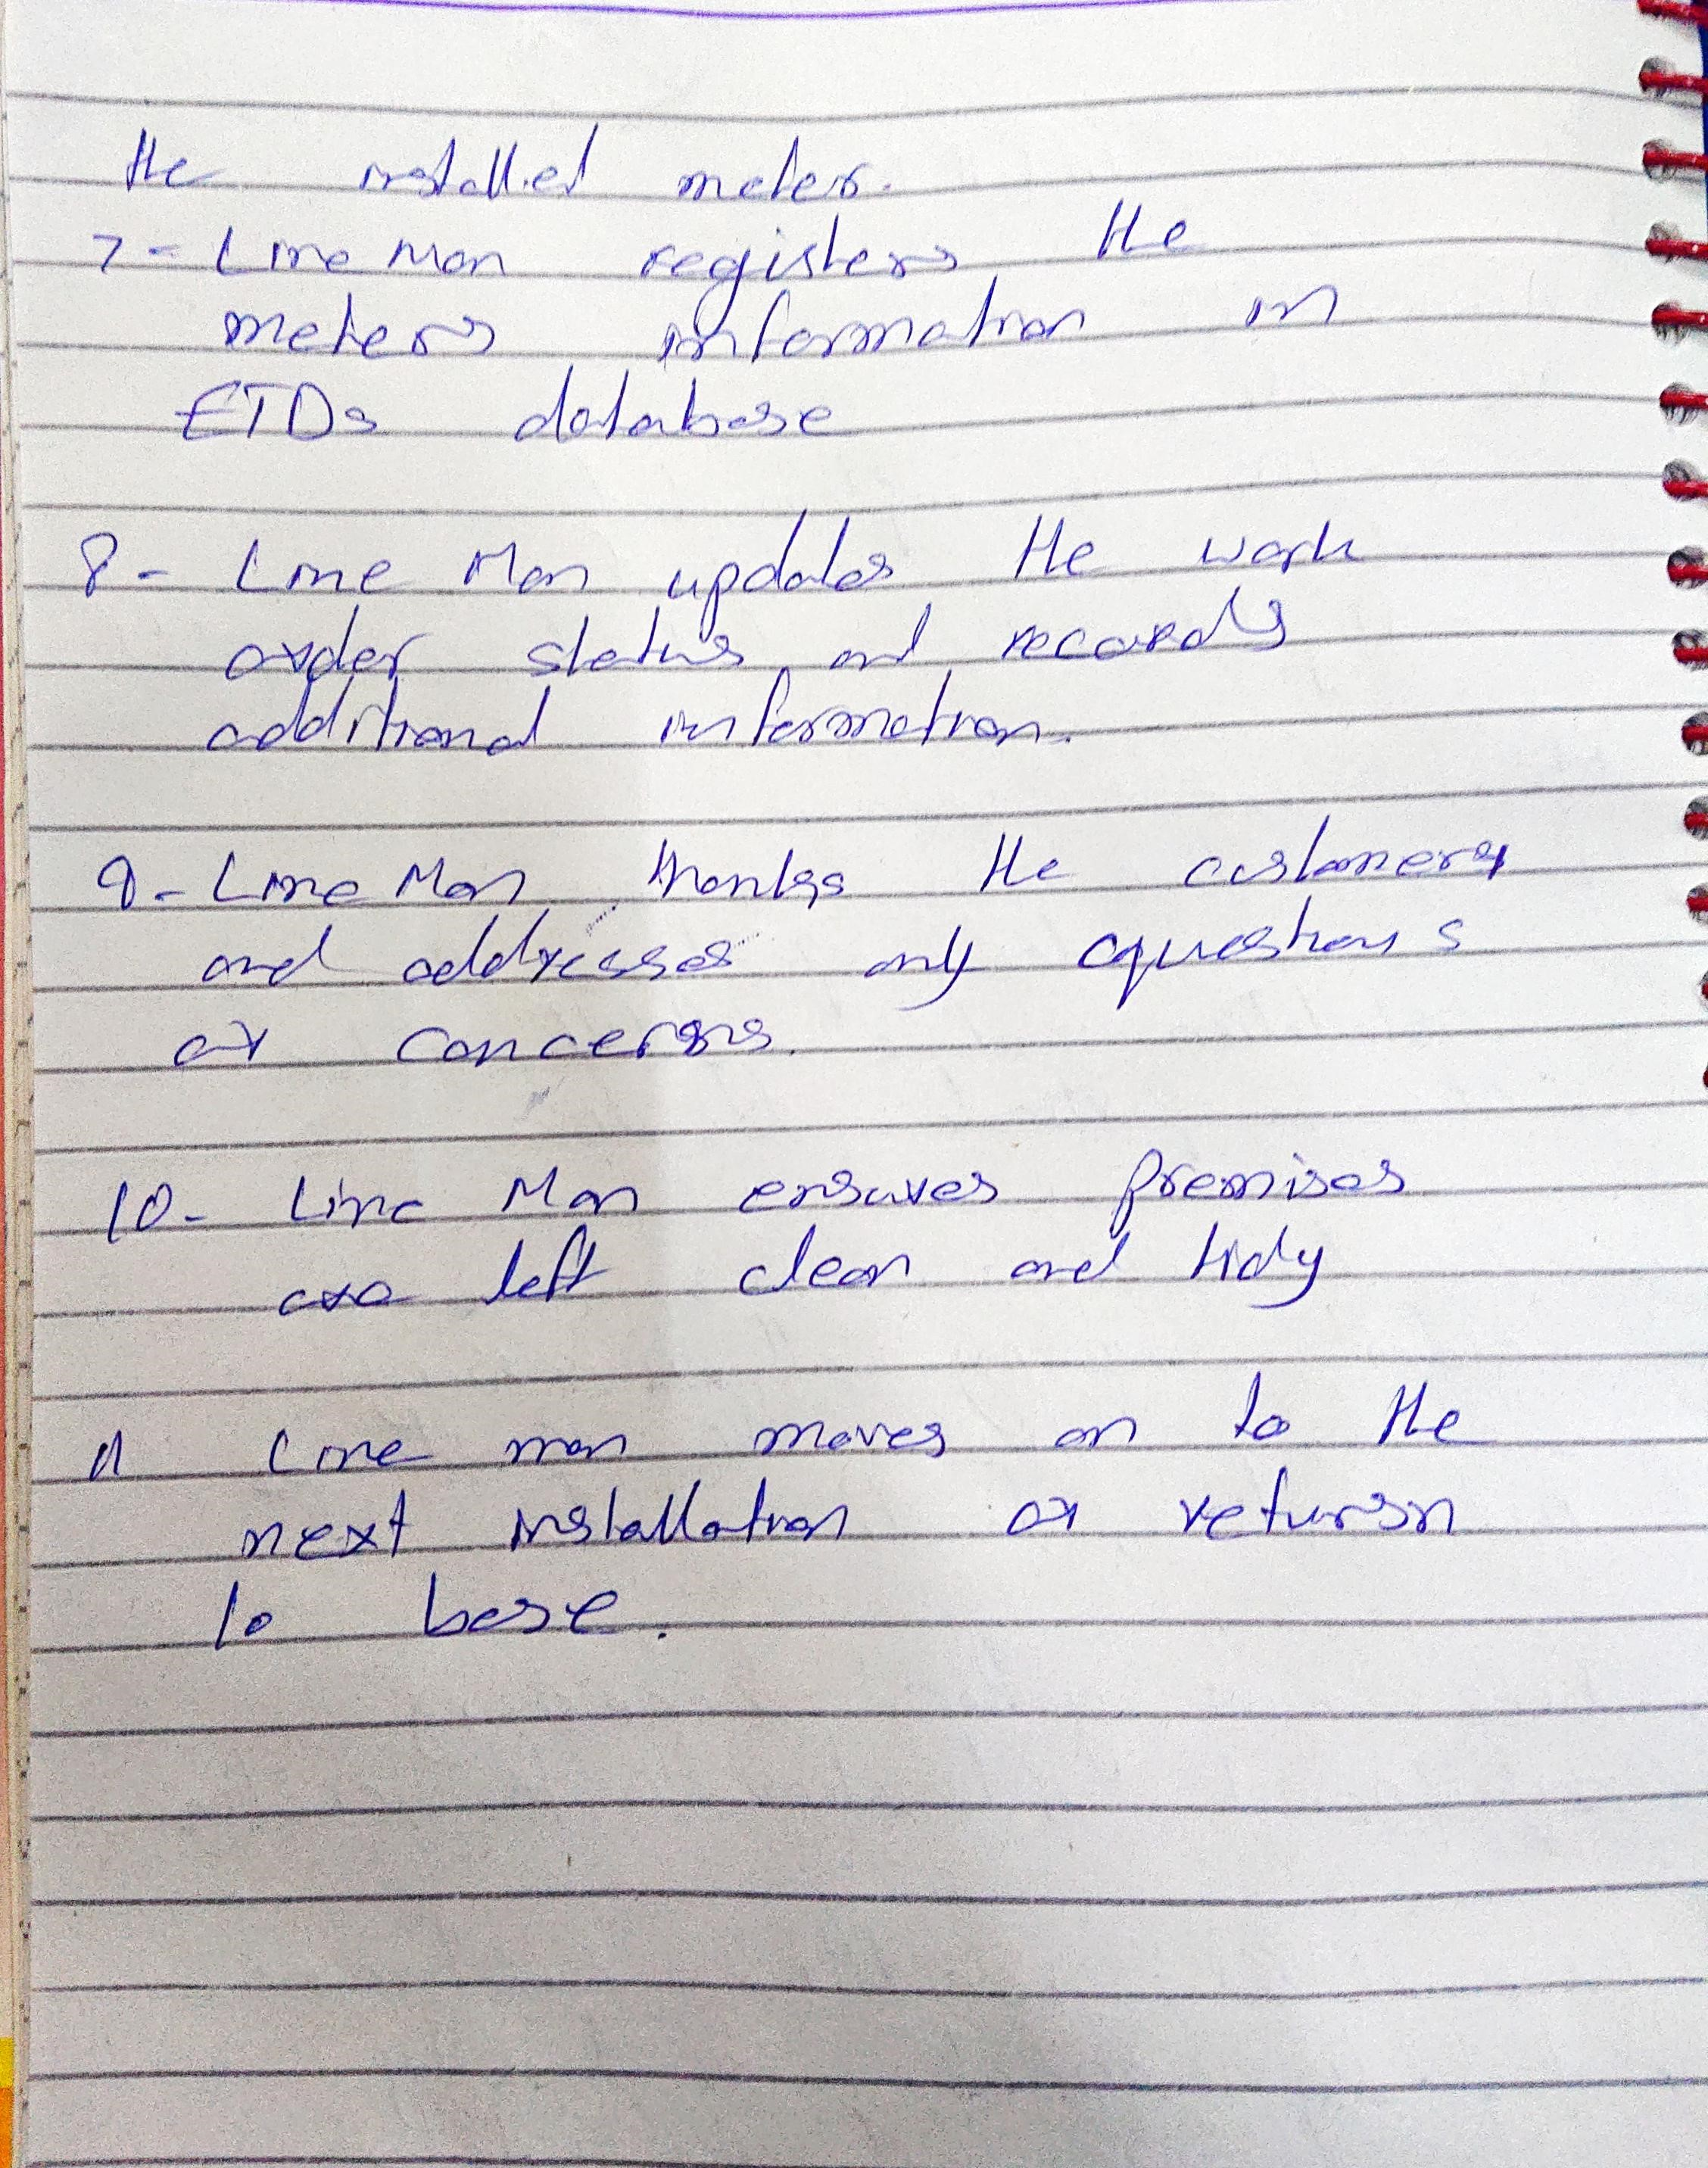 the installed meter.
7- Line Man registers the
meters information in
ETDs database
8- Line Man updates the work
order status and records
additional information.
9- Line Man thanks the customers
and addresses any questions
or concerns.
10- Line Man ensures premises
are left clean and tidy
11 Line man moves on to the
next installation or return
to base.